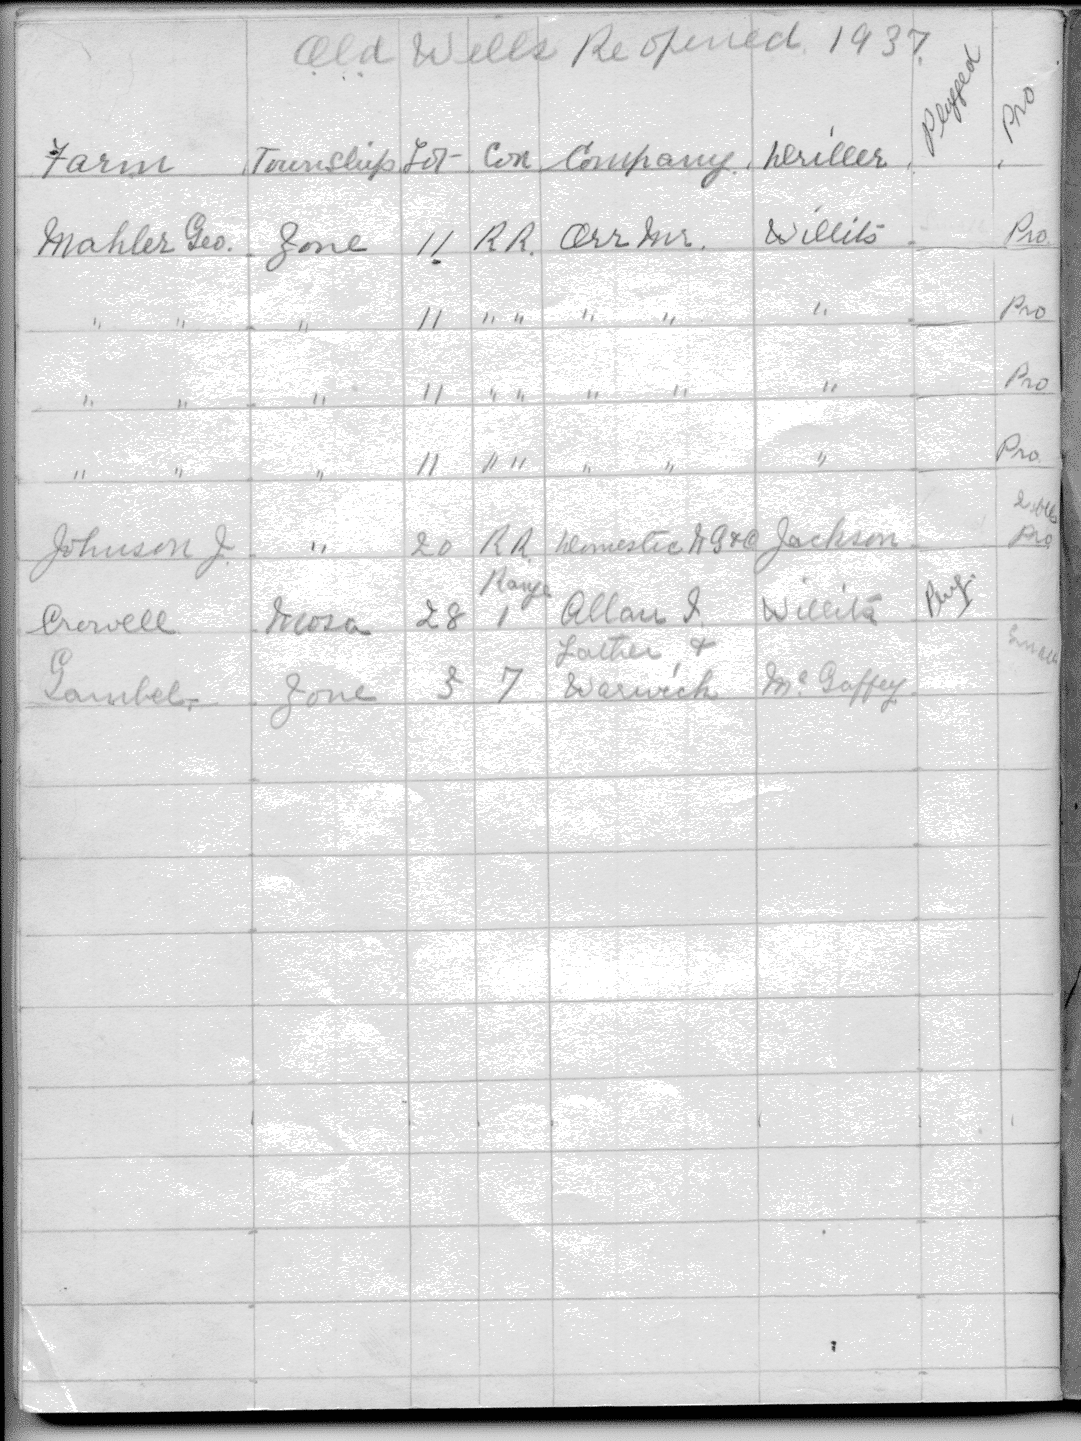 Old Wells Reopened 1937.
Farm Township Lot Con Company. Driller Plugged Pro
Mahler Geo. Zone 11 R R. Orr Mr. Willits Pro.
" " " 11 " " " " " Pro
" " " 11 " " " " " Pro
" " " 11 " " " " " Pro.
Johnson J. " 20 R R Domestic N G & O Jackson 2 bbls Pro.
Crowell Mosa 28 Range 1 Allan I. Willits Plug.
Zone 3 7 Lather & Warwick McGaffey. Small